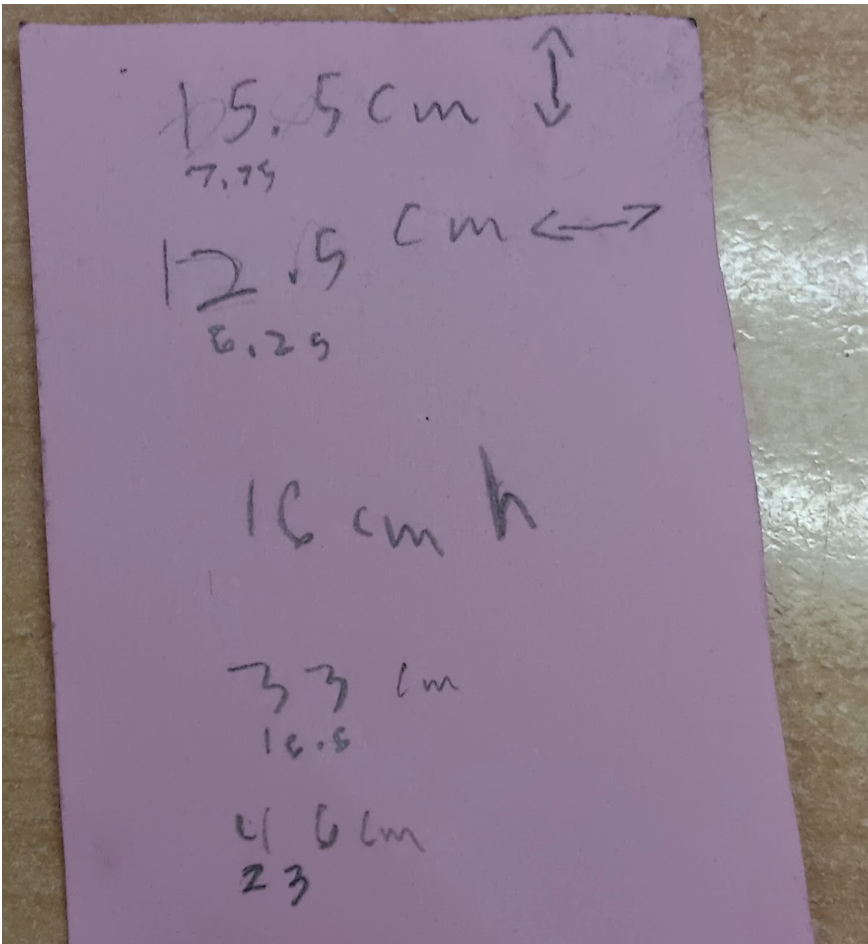 15.5 cm ↕
7.75
12.5 cm ↔
6.25
16 cm h
33 cm
16.5
46 cm
23